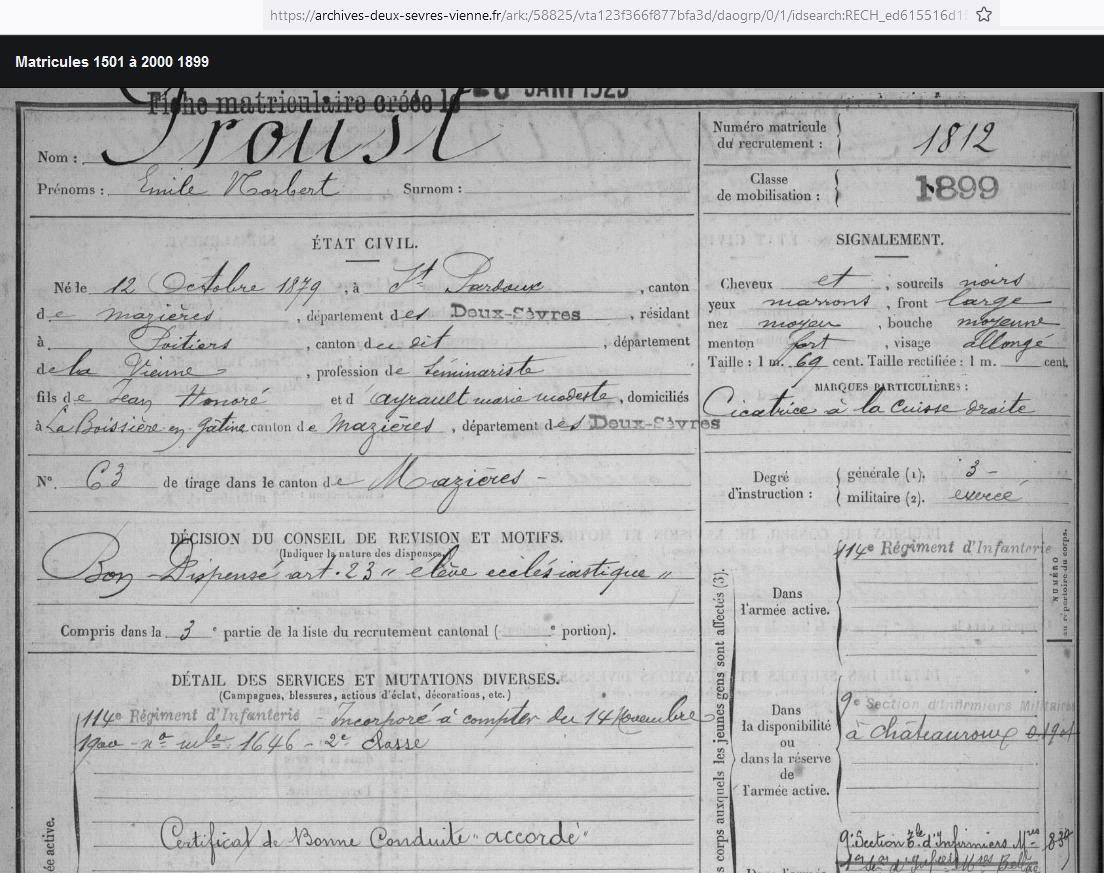 https://archives-deux-sevres-vienne.fr/ark:/58825/vta123f366f877bfa3d/daogrp/0/1/idsearch:RECH_ed615516d1
Matricules 1501 à 2000 1899
Fiche matriculaire créée le
Nom : Proust
Prénoms : Emile Norbert Surnom :
Numéro matricule du recrutement : 1812
Classe de mobilisation : 1899
ÉTAT CIVIL.
Né le 12 Octobre 1879, à St Pardoux, canton
de mazières, département des Deux-Sèvres, résidant
à Poitiers, canton du dit, département
de la Vienne, profession de Séminariste
fils de Jean Honoré et d'Ayrault marie modeste, domiciliés
à La Boissière en gâtine canton de Mazières, département des Deux-Sèvres
N° 63 de tirage dans le canton de Mazières -
SIGNALEMENT.
Cheveux et, sourcils noirs
yeux marrons, front large
nez moyen, bouche moyenne
menton fort, visage allongé
Taille : 1 m. 69 cent. Taille rectifiée : 1 m. cent.
MARQUES PARTICULIÈRES :
Cicatrice à la cuisse droite
Degré d'instruction : générale (1). 3 -
militaire (2). exercé
DÉCISION DU CONSEIL DE REVISION ET MOTIFS.
(Indiquer la nature des dispenses.)
Bon Dispensé art. 23 " elève ecclésiastique "
Compris dans la 3e partie de la liste du recrutement cantonal ( e portion).
DÉTAIL DES SERVICES ET MUTATIONS DIVERSES.
(Campagnes, blessures, actions d'éclat, décorations, etc.)
114e Régiment d'Infanterie - Incorporé à compter du 14 Novembre
1900 - no mle 1646 - 2e Classe
Certificat de Bonne Conduite "accordé"
ée active.
s corps auxquels les jeunes gens sont affectés (3).
Dans
l'armée active.
114e Régiment d'Infanterie
NUMÉRO
au répertoire du corps.
Dans
la disponibilité
ou
dans la réserve
de
l'armée active.
9e Section d'Infirmiers Militaires
à Châteauroux
9e Section d'Infirmiers Mres
Dans l'armée